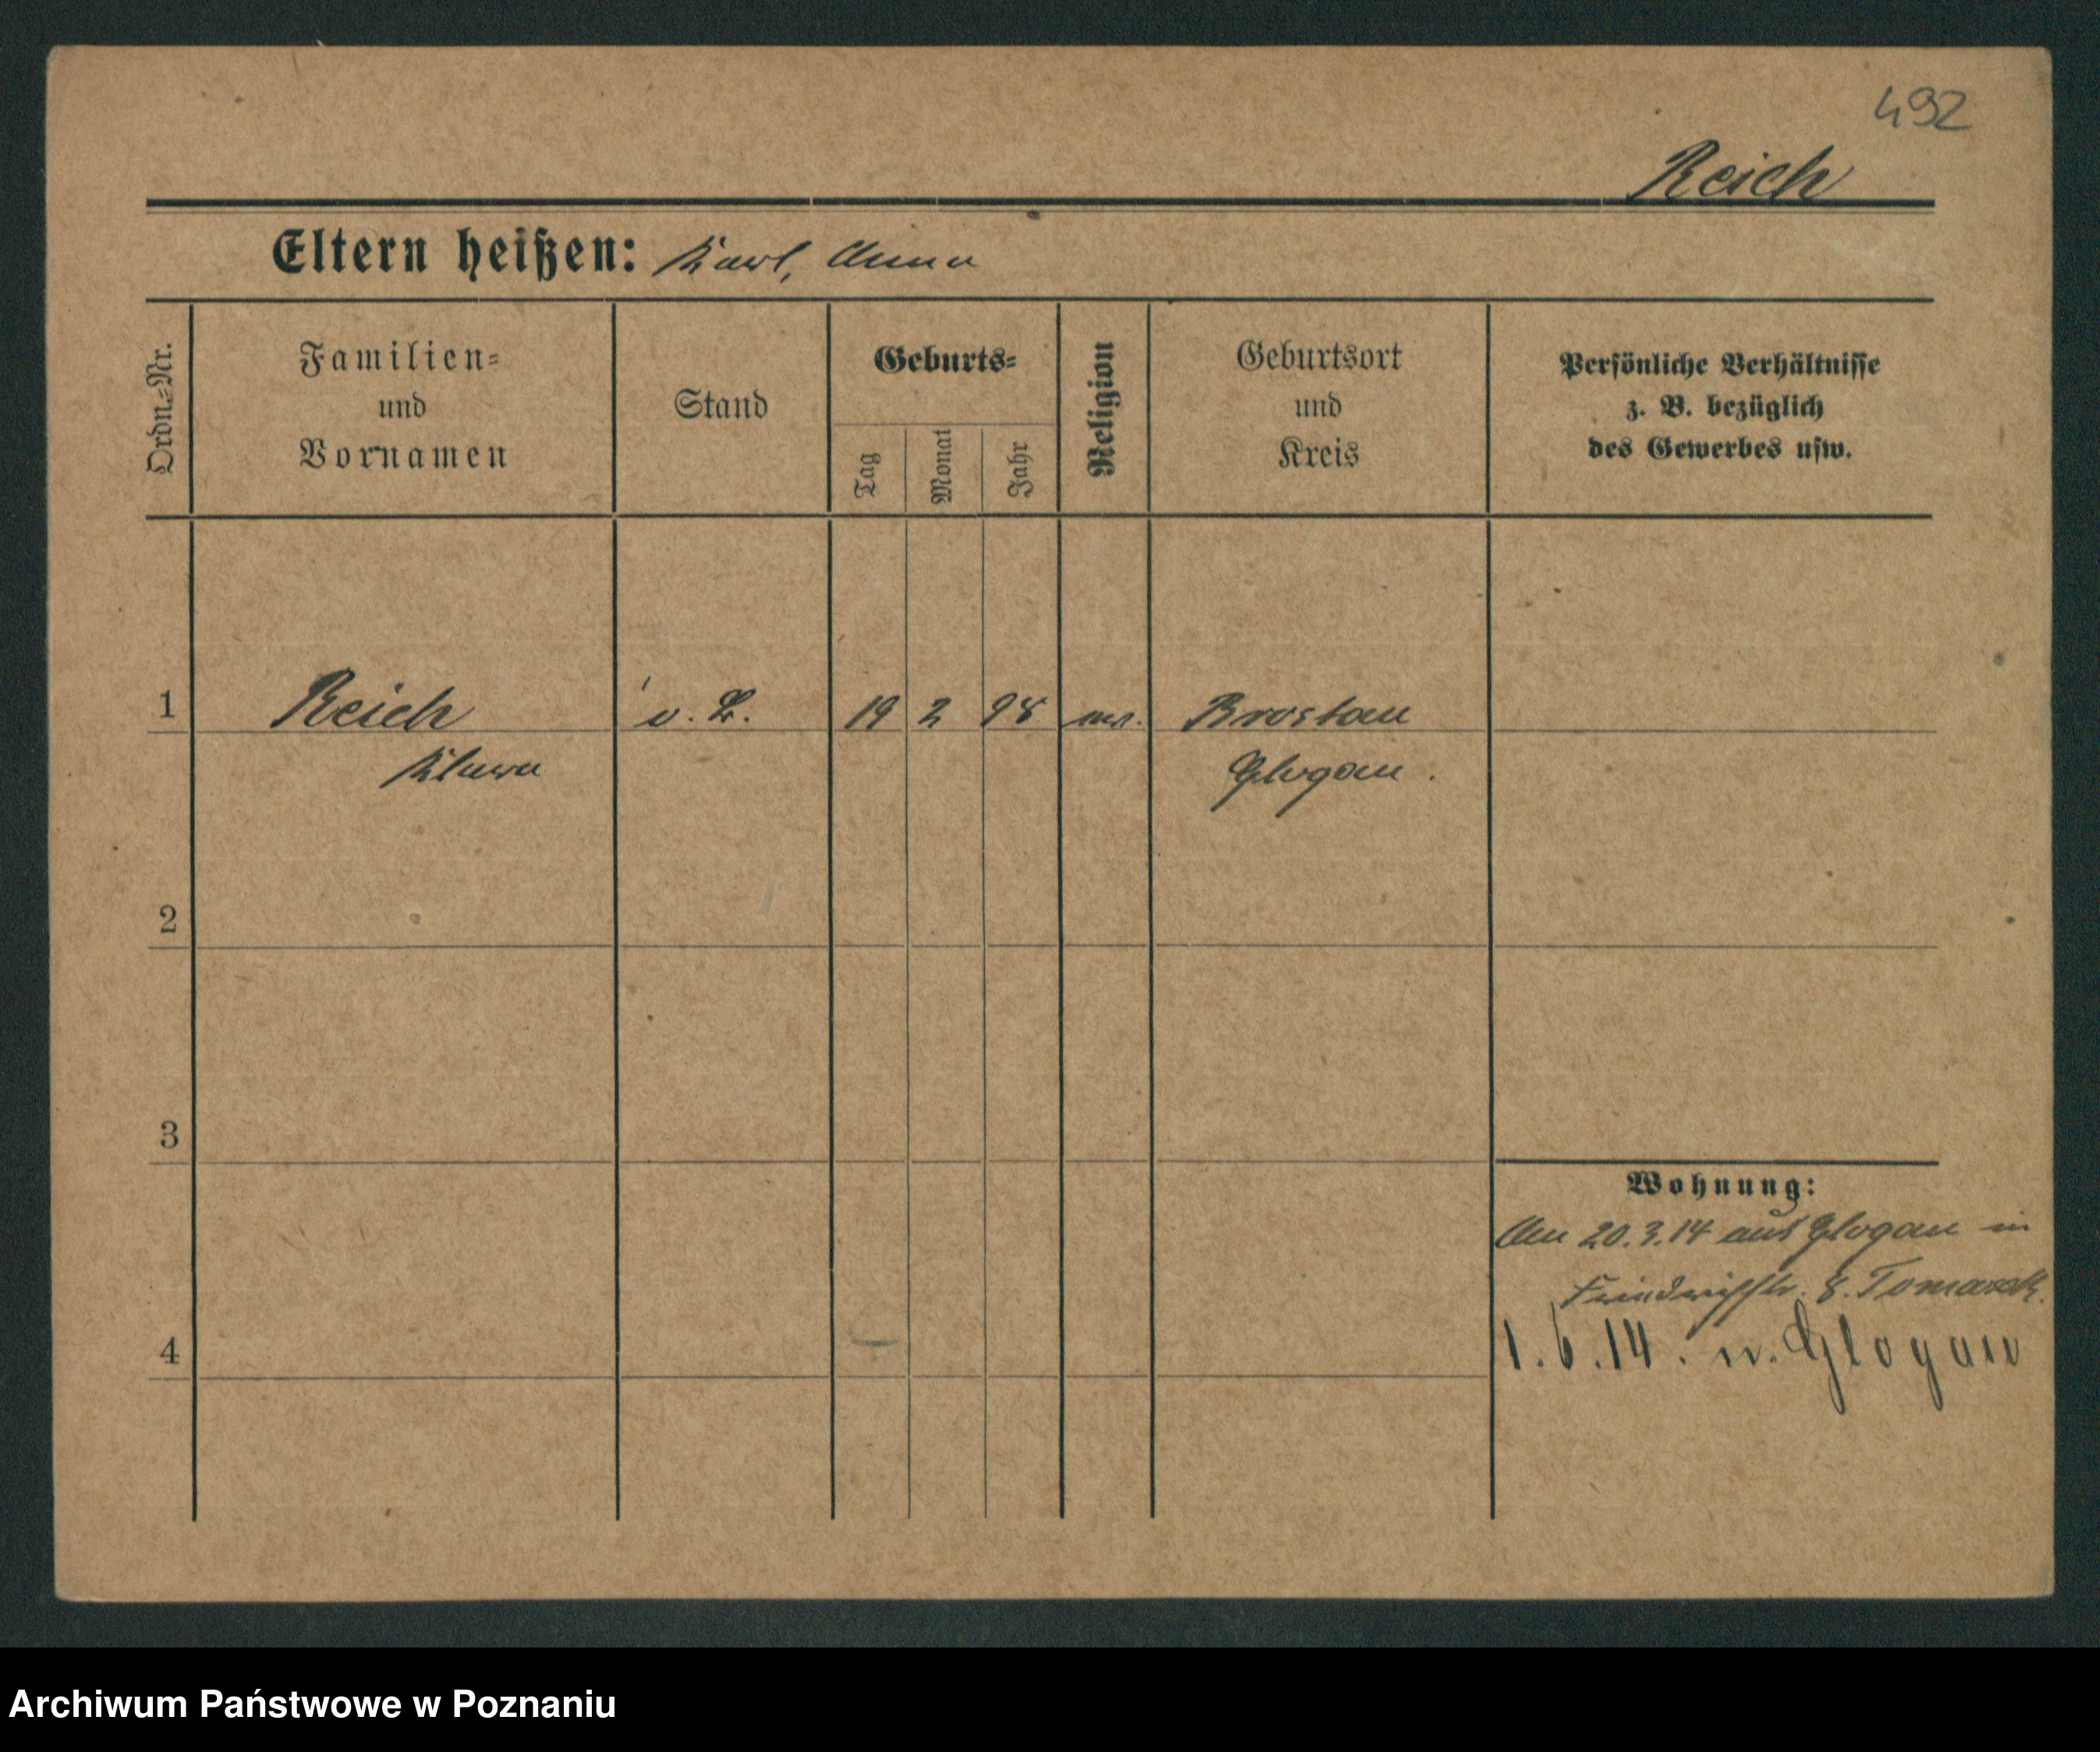 492
Reich
Eltern heißen: Karl, Anna
Ordn.=Nr.
Familien=
und
Vornamen
Stand
Geburts=
Tag
Monat
Jahr
Religion
Geburtsort
und
Kreis
Persönliche Verhältnisse
z. B. bezüglich
des Gewerbes usw.
1 Reich 19 2 98 Brostau
Klara Glogau.
2
3
Wohnung:
Am 20.3.14 aus Glogau in
Friedrichstr. 8.
4
1.6.14. n. Glogau
Archiwum Państwowe w Poznaniu